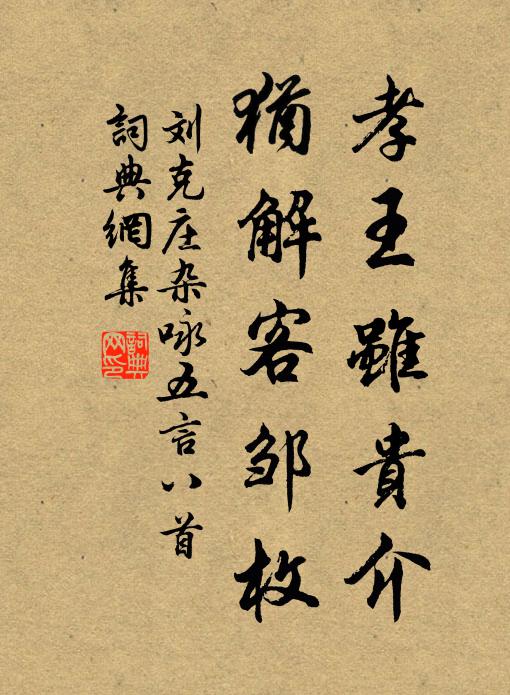 孝王雖貴介
猶解客邹枚
刘克庄杂咏五言八首
詞典網集
詞典網印